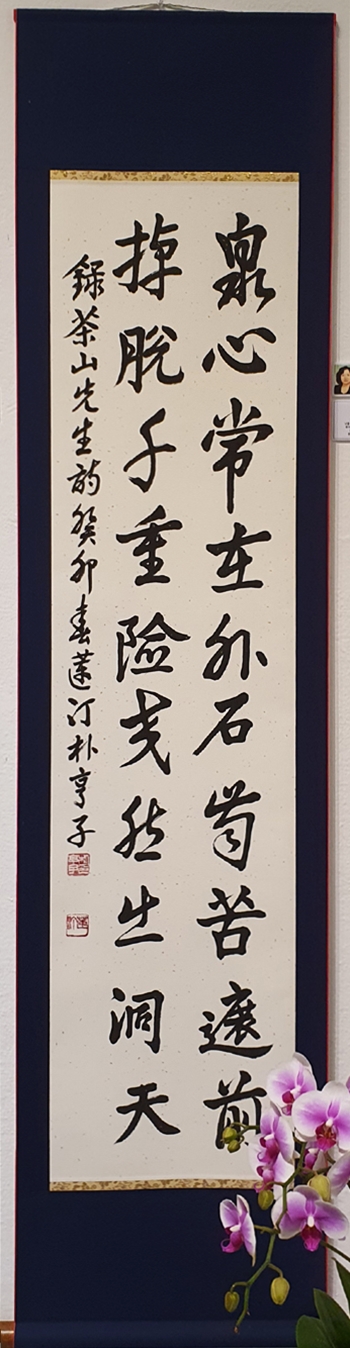 泉心常在外石齒苦遮前
掉脫千重險夬然出洞天
錄茶山先生詩癸卯春蓮汀朴亨子